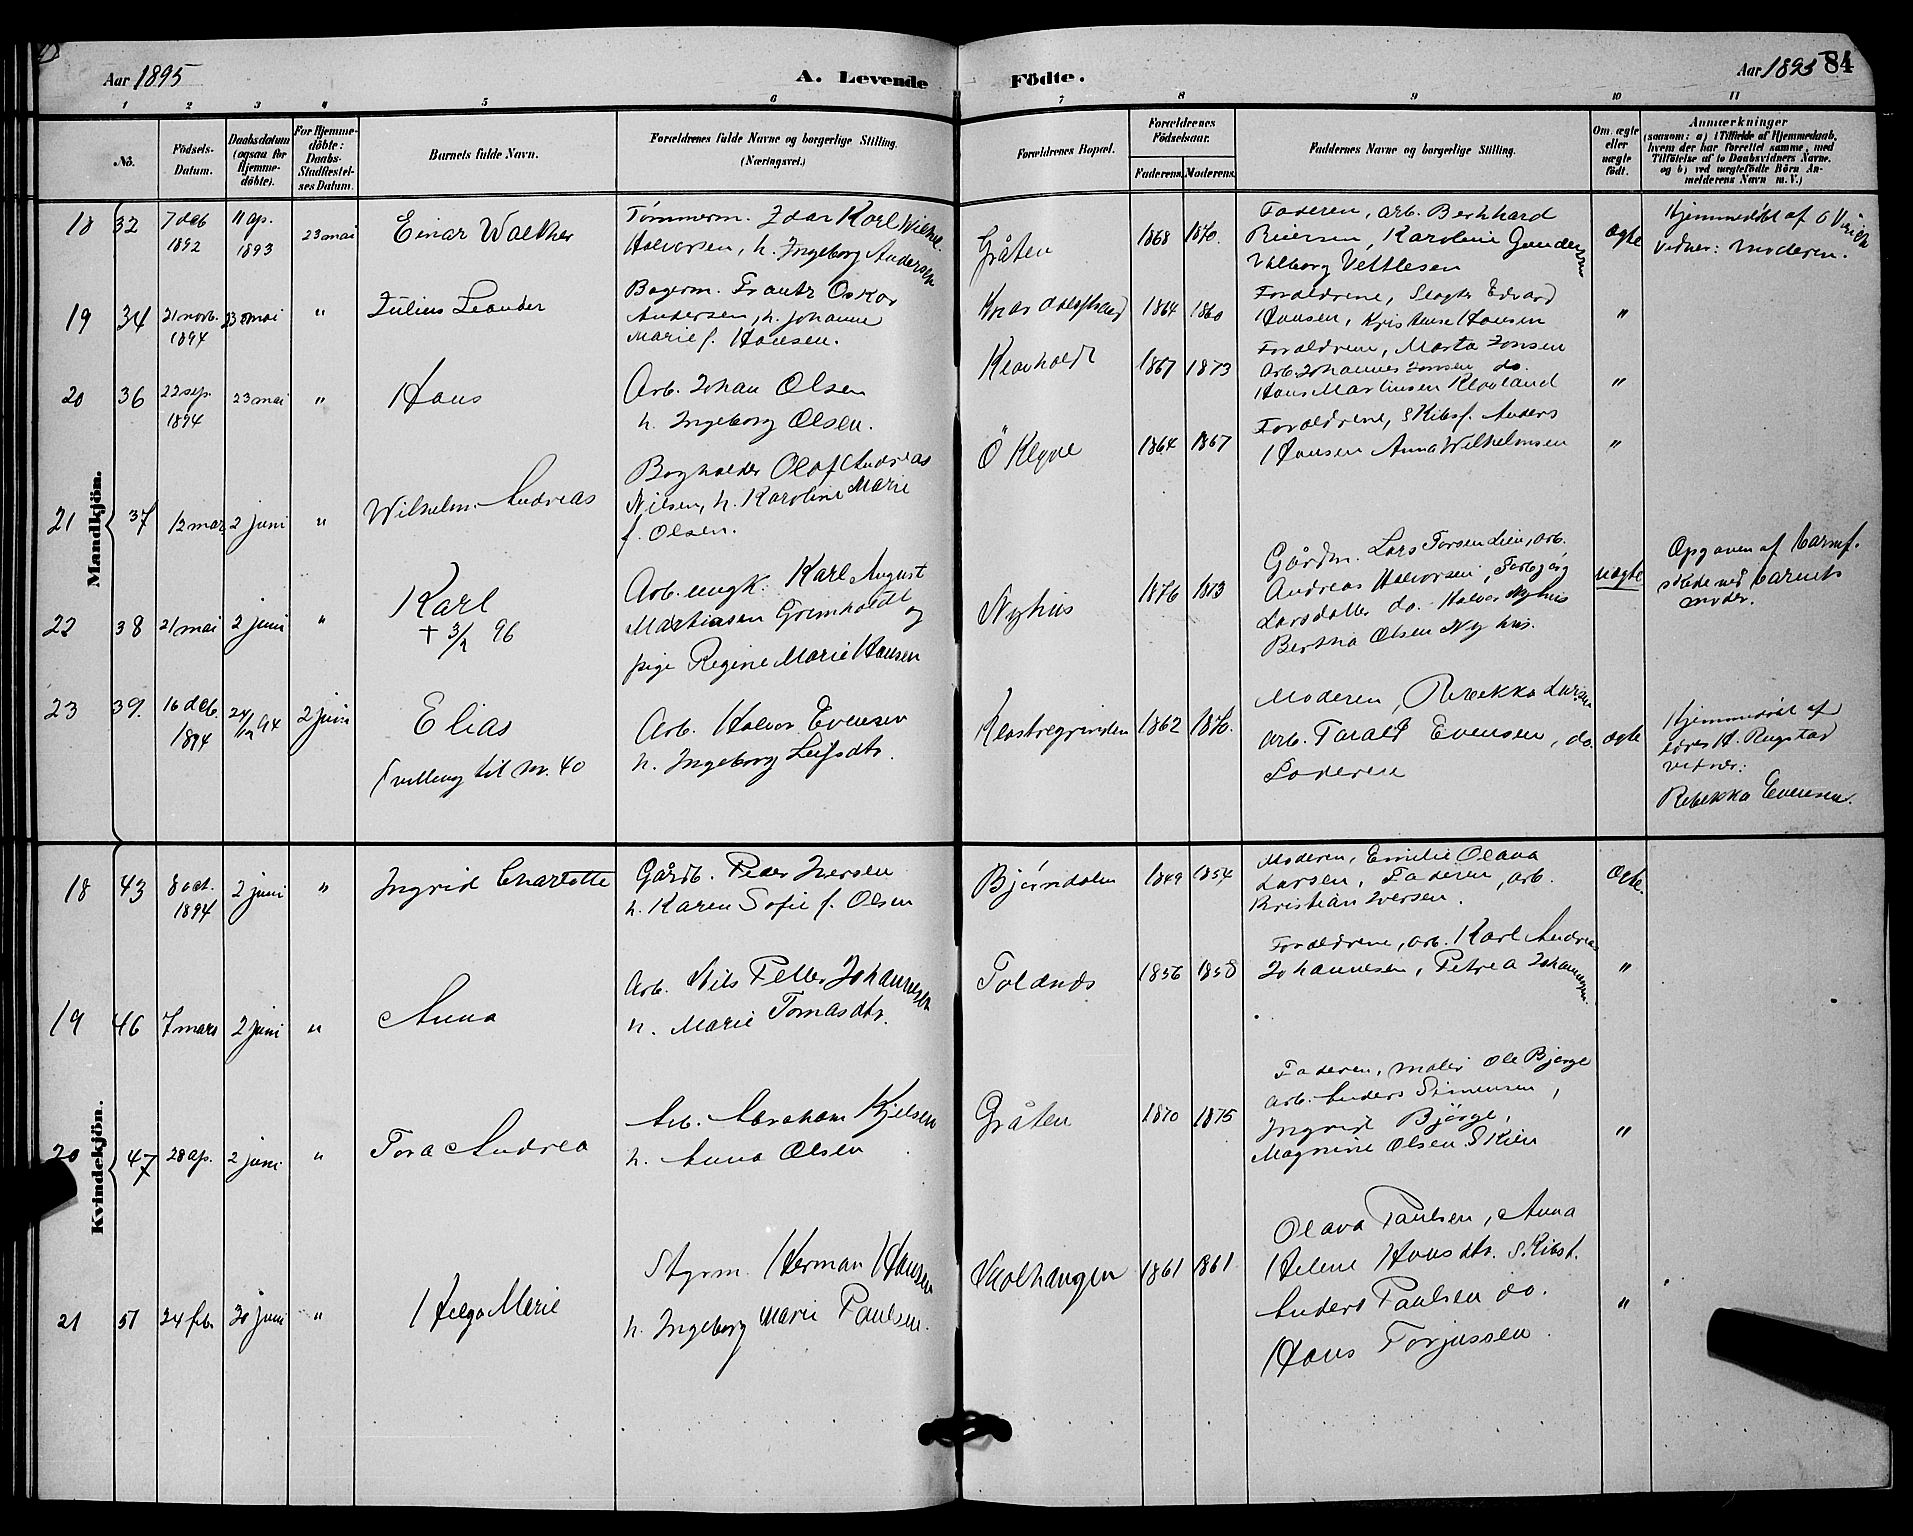 Aar 1895
A. Levende
Födte.
Aar 1895
84
1 2 3 4 5 6 7 8 9 10 11
No.
Födsels-
Datum.
Daabsdatum
(ogsaa for
Hjemme-
döbte).
For Hjemme-
döbte:
Daabs-
Stadfæstel-
ses Datum.
Barnets fulde Navn.
Forældrenes fulde Navne og borgerlige Stilling.
(Næringsvei.)
Forældrenes Bopæl.
Forældrenes
Födselsaar.
Faderens. Moderens.
Faddernes Navne og borgerlige Stilling.
Om ægte
eller
uægte
födt.
Anmærkninger
(saasom: a) i Tilfælde af Hjemmedaab,
hvem der har forrettet samme, med
Tilföielse af to Daabsvidners Navne,
og b) ved uægtefödte Börn An-
melderens Navn m. V.)
Mandkjön.
18 32 7 deb 1892 11 ap. 1893 23 mai
Einar Walther
Tømmerm. Idar Karl Wilhel.
Halvorsen, h. Ingeborg Andersen
Gråten 1868 1870.
Faderen, arb. Bernhard
Reiersen, Karoline Gundersen
Valborg Vettlesen
ægte
Hjemmedøbt af
Vidner: moderen.
19 34 21 novb. 1894 23 mai "
Julius Leander
Bagerm. Frantz Oskar
Andersen, h. Johanne
Marie f. Hansen.
1864 1860
Forældrene, Slagter Edvard
Hansen, Kristense Hansen
"
20 36 22 sep. 1894 23 mai "
Hans
Arb. Johan Olsen
h. Ingeborg Olsen.
Klovholdt 1867 1873
Forældrene, Marta Jonsen
Arb. Johannes Jonsen do.
Hans Martinsen Klovland
"
21 37 12 mar 2 juni "
Wilhelm Andreas
Bogholder Olaf Andreas
Nilsen, h. Karoline Marie
f. Olsen.
Ö Kleve 1864 1867
Forældrene, Skibsf. Anders
Hansen Anna Wilhelmsen
"
22 38 21 mai 2 juni "
Karl
+ 3/2 96
Arb. ungk. Karl August
Mathiasen Gromholdt og
pige Regine Marie Hansen
Nyhus 1876 1873
Gårdm. Lars Torsen Lien, arb.
Andreas Halvorsen, Torbjørg
Larsdatter do. Halvor Nyhus
Bertha Olsen Nyhus.
uægte
Opgaven af barnef.
skede ved barnets
moder.
23 39. 16 deb. 1894 24/12 94 2 juni
Elias
Tvilling til nr. 40
Arb. Halvor Evensen
h. Ingeborg Leifsdtr.
Klostregrinden 1862 1870.
Moderen, Rebekka Larsen
arb. Tarald Evensen, do.
Faderen
ægte
Hjemmedøbt af
H. Rugstad
vidner:
Rebekka Evensen.
Kvindekjön.
18 43 8 oct. 1894 2 juni "
Ingrid Charlotte
Gårdb. Peder Iversen
h. Karen Sofie f. Olsen
Bjørndalen 1849 1854
Moderen, Emilie Olava
Larsen, Faderen, arb.
Kristian Iversen.
Ægte.
19 46 7 mars 2 juni "
Anna
Arb. Nils Petter Johannesen
h. Marie Tomasdtr.
Follands 1856 1858
Forældrene, arb. Karl Andrea
Johannesen, Petrea Johannesen.
"
20 47 28 ap. 2 juni "
Tora Andrea
Arb. Abraham Kjelsen
h. Anna Olsen
Gråten 1870 1875
Faderen, maler Ole Bjørge
arb. Anders Simensen,
Ingrid Bjørge,
Magnine Olsen Skien
"
21 51 24 feb. 20 juni "
Helga Marie
Styrm. Herman Hansen
h. Ingeborg Marie Paulsen.
Skolhaugen 1861 1861
Olava Paulsen, Anna
Helene Hansdtr. Skibst.
Anders Paulsen do.
Hans Torjussen.
"